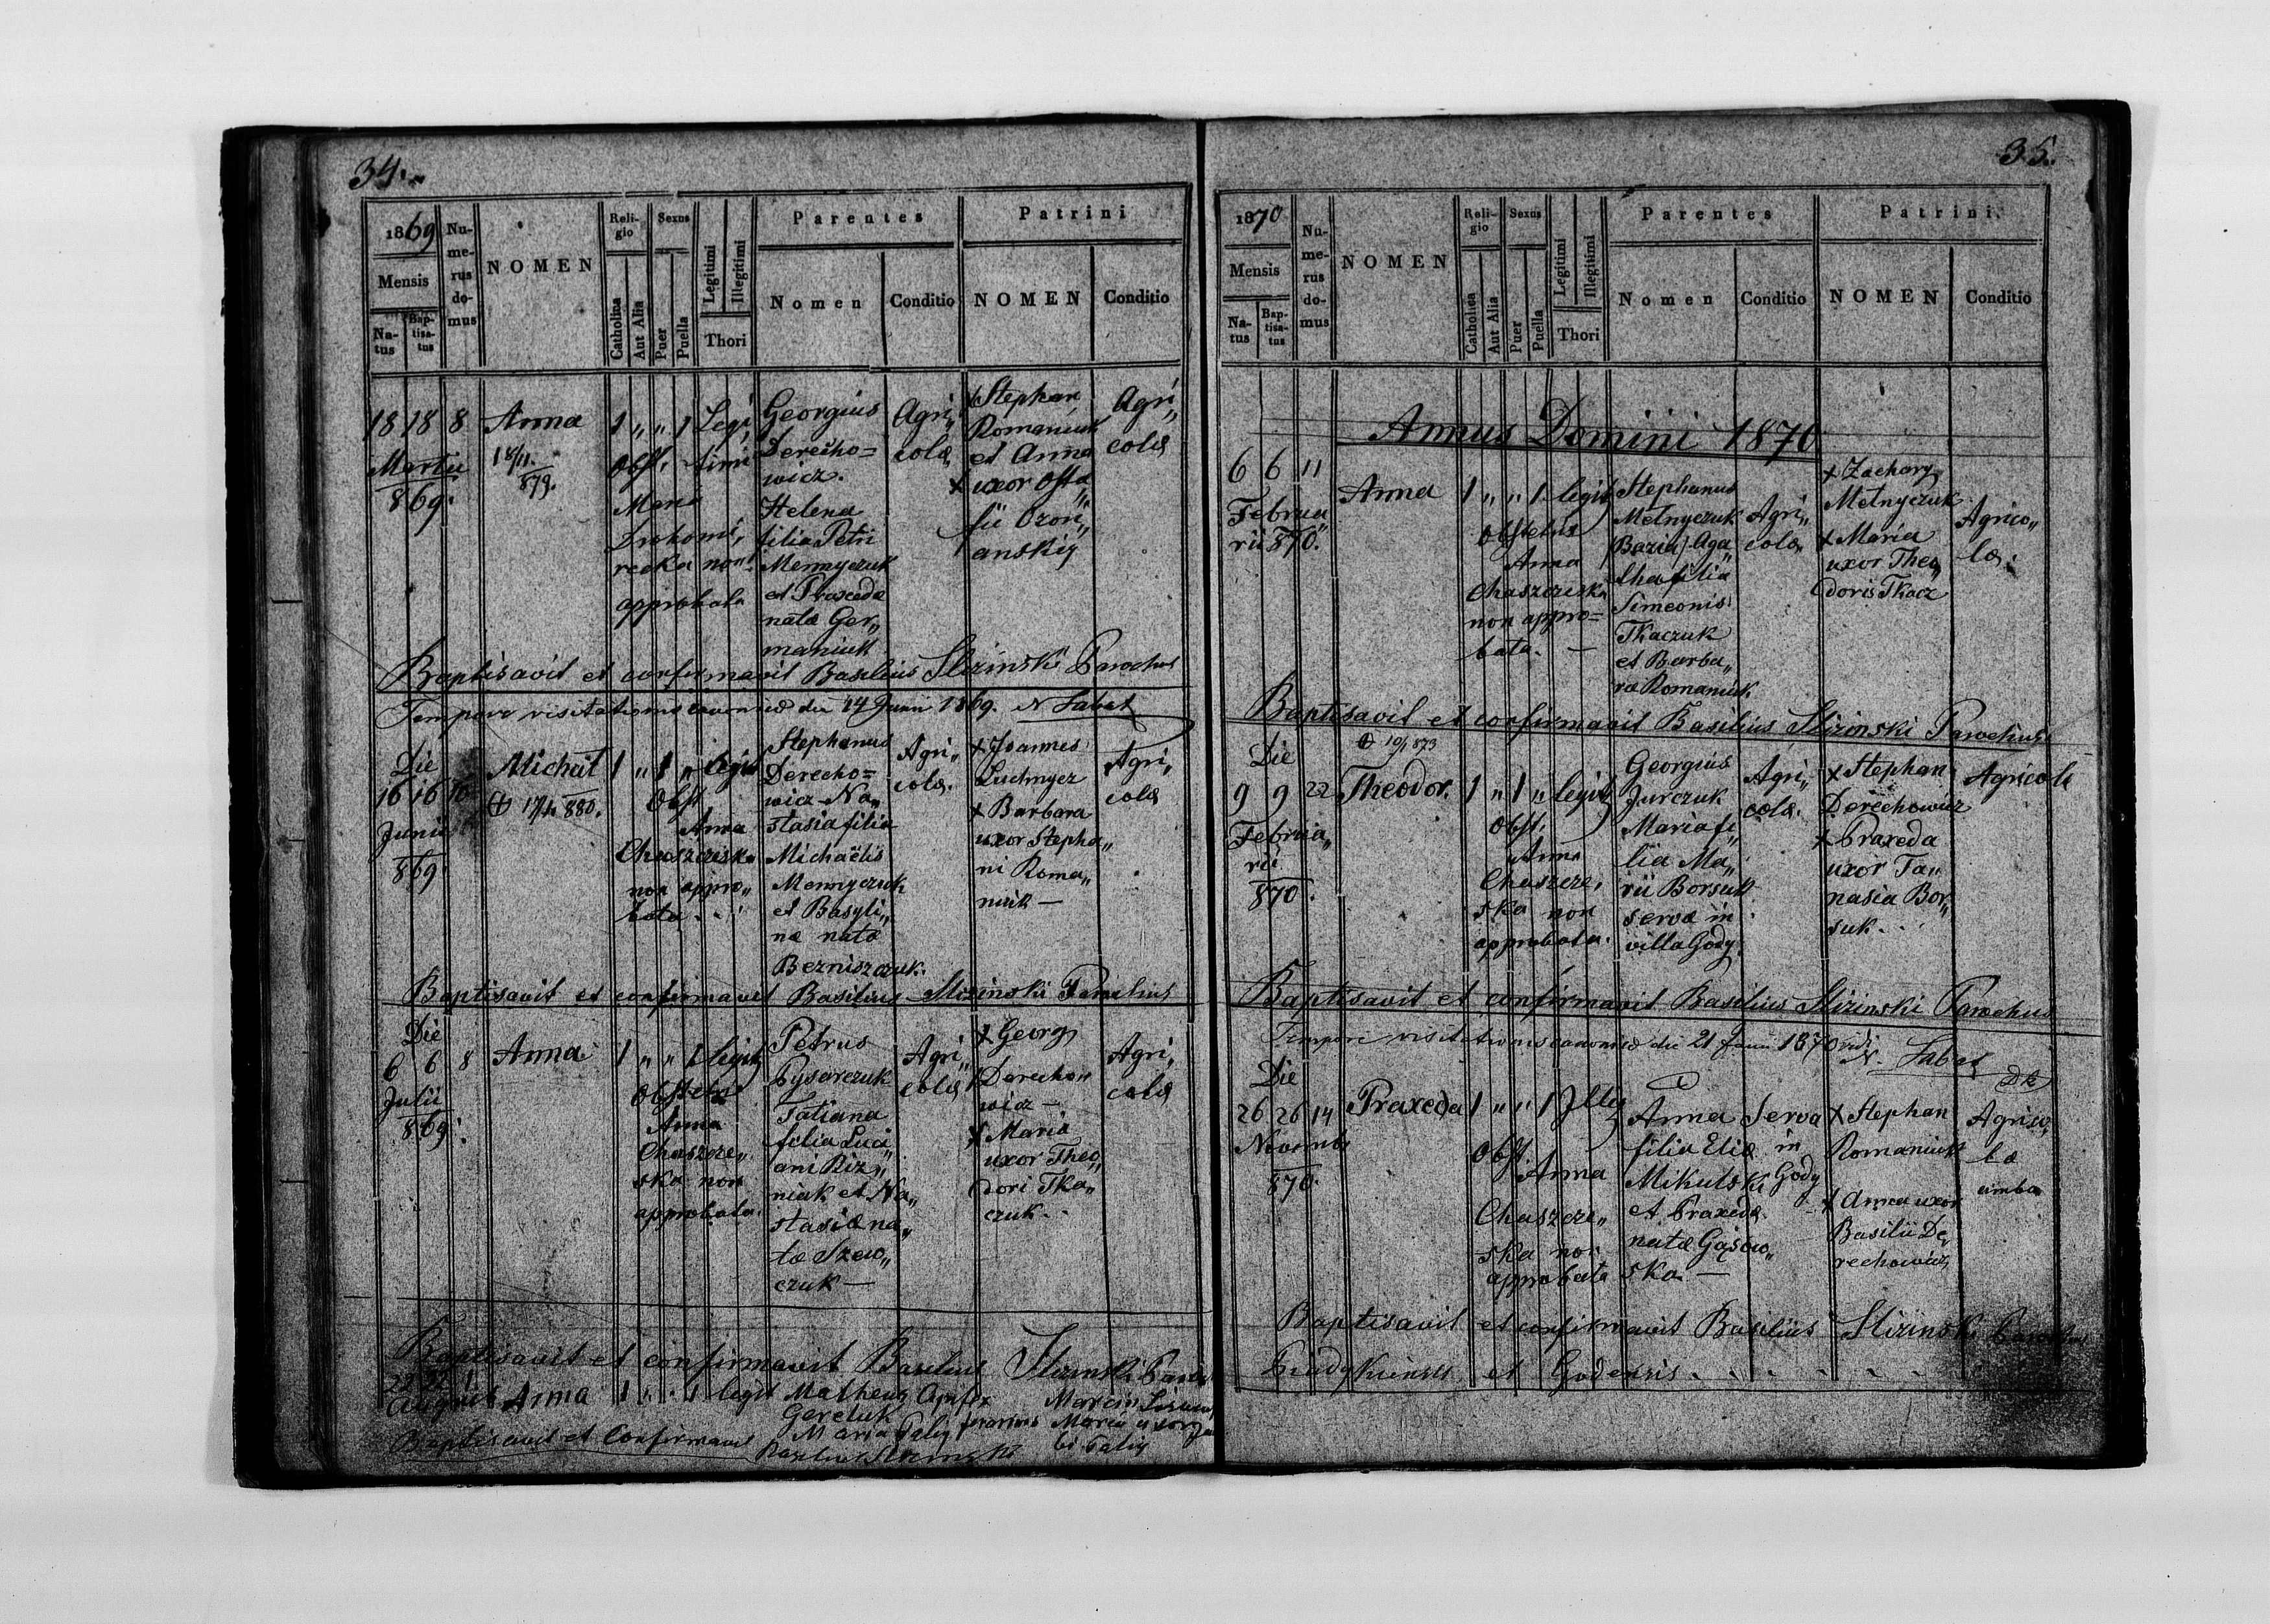 34.
1869
Mensis
Natus
Baptisatus
Numerus domus
NOMEN
Religio
Catholica
Aut Alia
Sexus
Puer
Puella
Legitimi
Illegitimi
Thori
Parentes
Nomen
Conditio
Patrini
NOMEN
Conditio
18 18 8 Anna 1 „ „ 1 Legi„
timi
Martii
869.
18/11.
879.
Obst.
approbata
Georgius
Derecho=
wicz.
Helena
filia Petri
Mennyczuk
et Praxeda
nata Ger„
maniuk
Agri„
cola
+ Stephan
Romaniuk
et Anna
+ uxor Osta
fii Ozori„
anskiy
Agri„
cola
Baptisavit et confirmavit Basilius Slizinski Parochus
Tempore visitationis canonica die 14 Junii 1869.
Die
16 16 10
Junii
869
Michael 1 „ 1 „ legit
17/4 880.
Obst.
Anna
Chaszczeska
non appro„
bata
Stephanus
Derecho=
wicz Na„
stasia filia
Michaëlis
Mennyczuk
et Basyli„
na nata
Bezniszczuk.
Agri„
cola.
+ Joannes
+ Barbara
uxor Stepha„
ni Roma„
niuk —
Agri„
cola
Baptisavit et confirmavit Basilius Slizinski Parochus
Die
6 6 8
Julii
869.
Anna 1 „ „ 1 legit
Obstetrix
Anna
Chaszcze„
ska non
approbata.
Petrus
Pysarczuk
Tatiana
filia Luci„
ani Riz„
niak et Na„
stasia na„
ta Szew„
czuk —
Agri„
cola
+ Georg
Derecho„
wicz —
+ Maria
uxor Theo„
dori Tka„
czuk.
Agri„
cola
Baptisavit et confirmavit Basilius Slizinski
22 22 1
Augusti Anna 1 „ „ 1 legit Matheus
Gereluk
Maria
Marcin
Maria uxor
Baptisavit et Confirmavit
35.
1870
Mensis
Natus
Baptisatus
Numerus domus
NOMEN
Religio
Catholica
Aut Alia
Sexus
Puer
Puella
Legitimi
Illegitimi
Thori
Parentes
Nomen
Conditio
Patrini.
NOMEN
Conditio
Annus Domini 1870
6 6 11
Februa„
rii 870.
Anna 1 „ „ 1 legit
Obstetrix
Anna
Chaszczeska
non appro=
bata. —
Stephanus
Melnyczuk
(Bazia) Aga„
tha filia
Simeonis
Tkaczuk
et Barba„
ra Romaniuk
Agri„
cola
+ Zachary
Melnyczuk
+ Maria
uxor Theo„
doris Tkacz
Agrico„
la.
Baptisavit et confirmavit Basilius Slizinski Parochus
Die
9 9 22
Februa„
rii
870.
19/1 873
Theodor. 1 „ 1 „ legit
Obst.
Anna
Chaszcze„
ska non
approbata.
Georgius
Jurczuk
Maria fi„
lia Ma„
rii Borsuk
serva in
villa Gody.
Agri„
cola.
+ Stephan
Derechowicz
+ Praxeda
uxor Ta„
nasia Bor„
suk.
Agricola
Baptisavit et confirmavit Basilius Slizinski Parochus
Tempore visitationis canonica die 21 Junii 1870 vidi
Die
26 26 14
Novemb
870.
Praxeda 1 „ „ 1 Illeg
Obst.
Anna
Chaszcze„
ska non
approbata
Anna
filia Elia
Mikulski
et Praxeda
nata Gąsow„
ska —
Serva
in
Gody
+ Stephan
Romaniuk
+ Anna uxor
Basilii De„
rechowicz
Agrico„
la
ambo
Baptisavit et confirmavit Basilius Slizinski Parochus
et Godensis